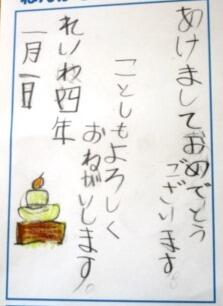 あけましておめでとう
ございます。
ことしもよろしく
おねがいします。
れいわ四年
一月一日